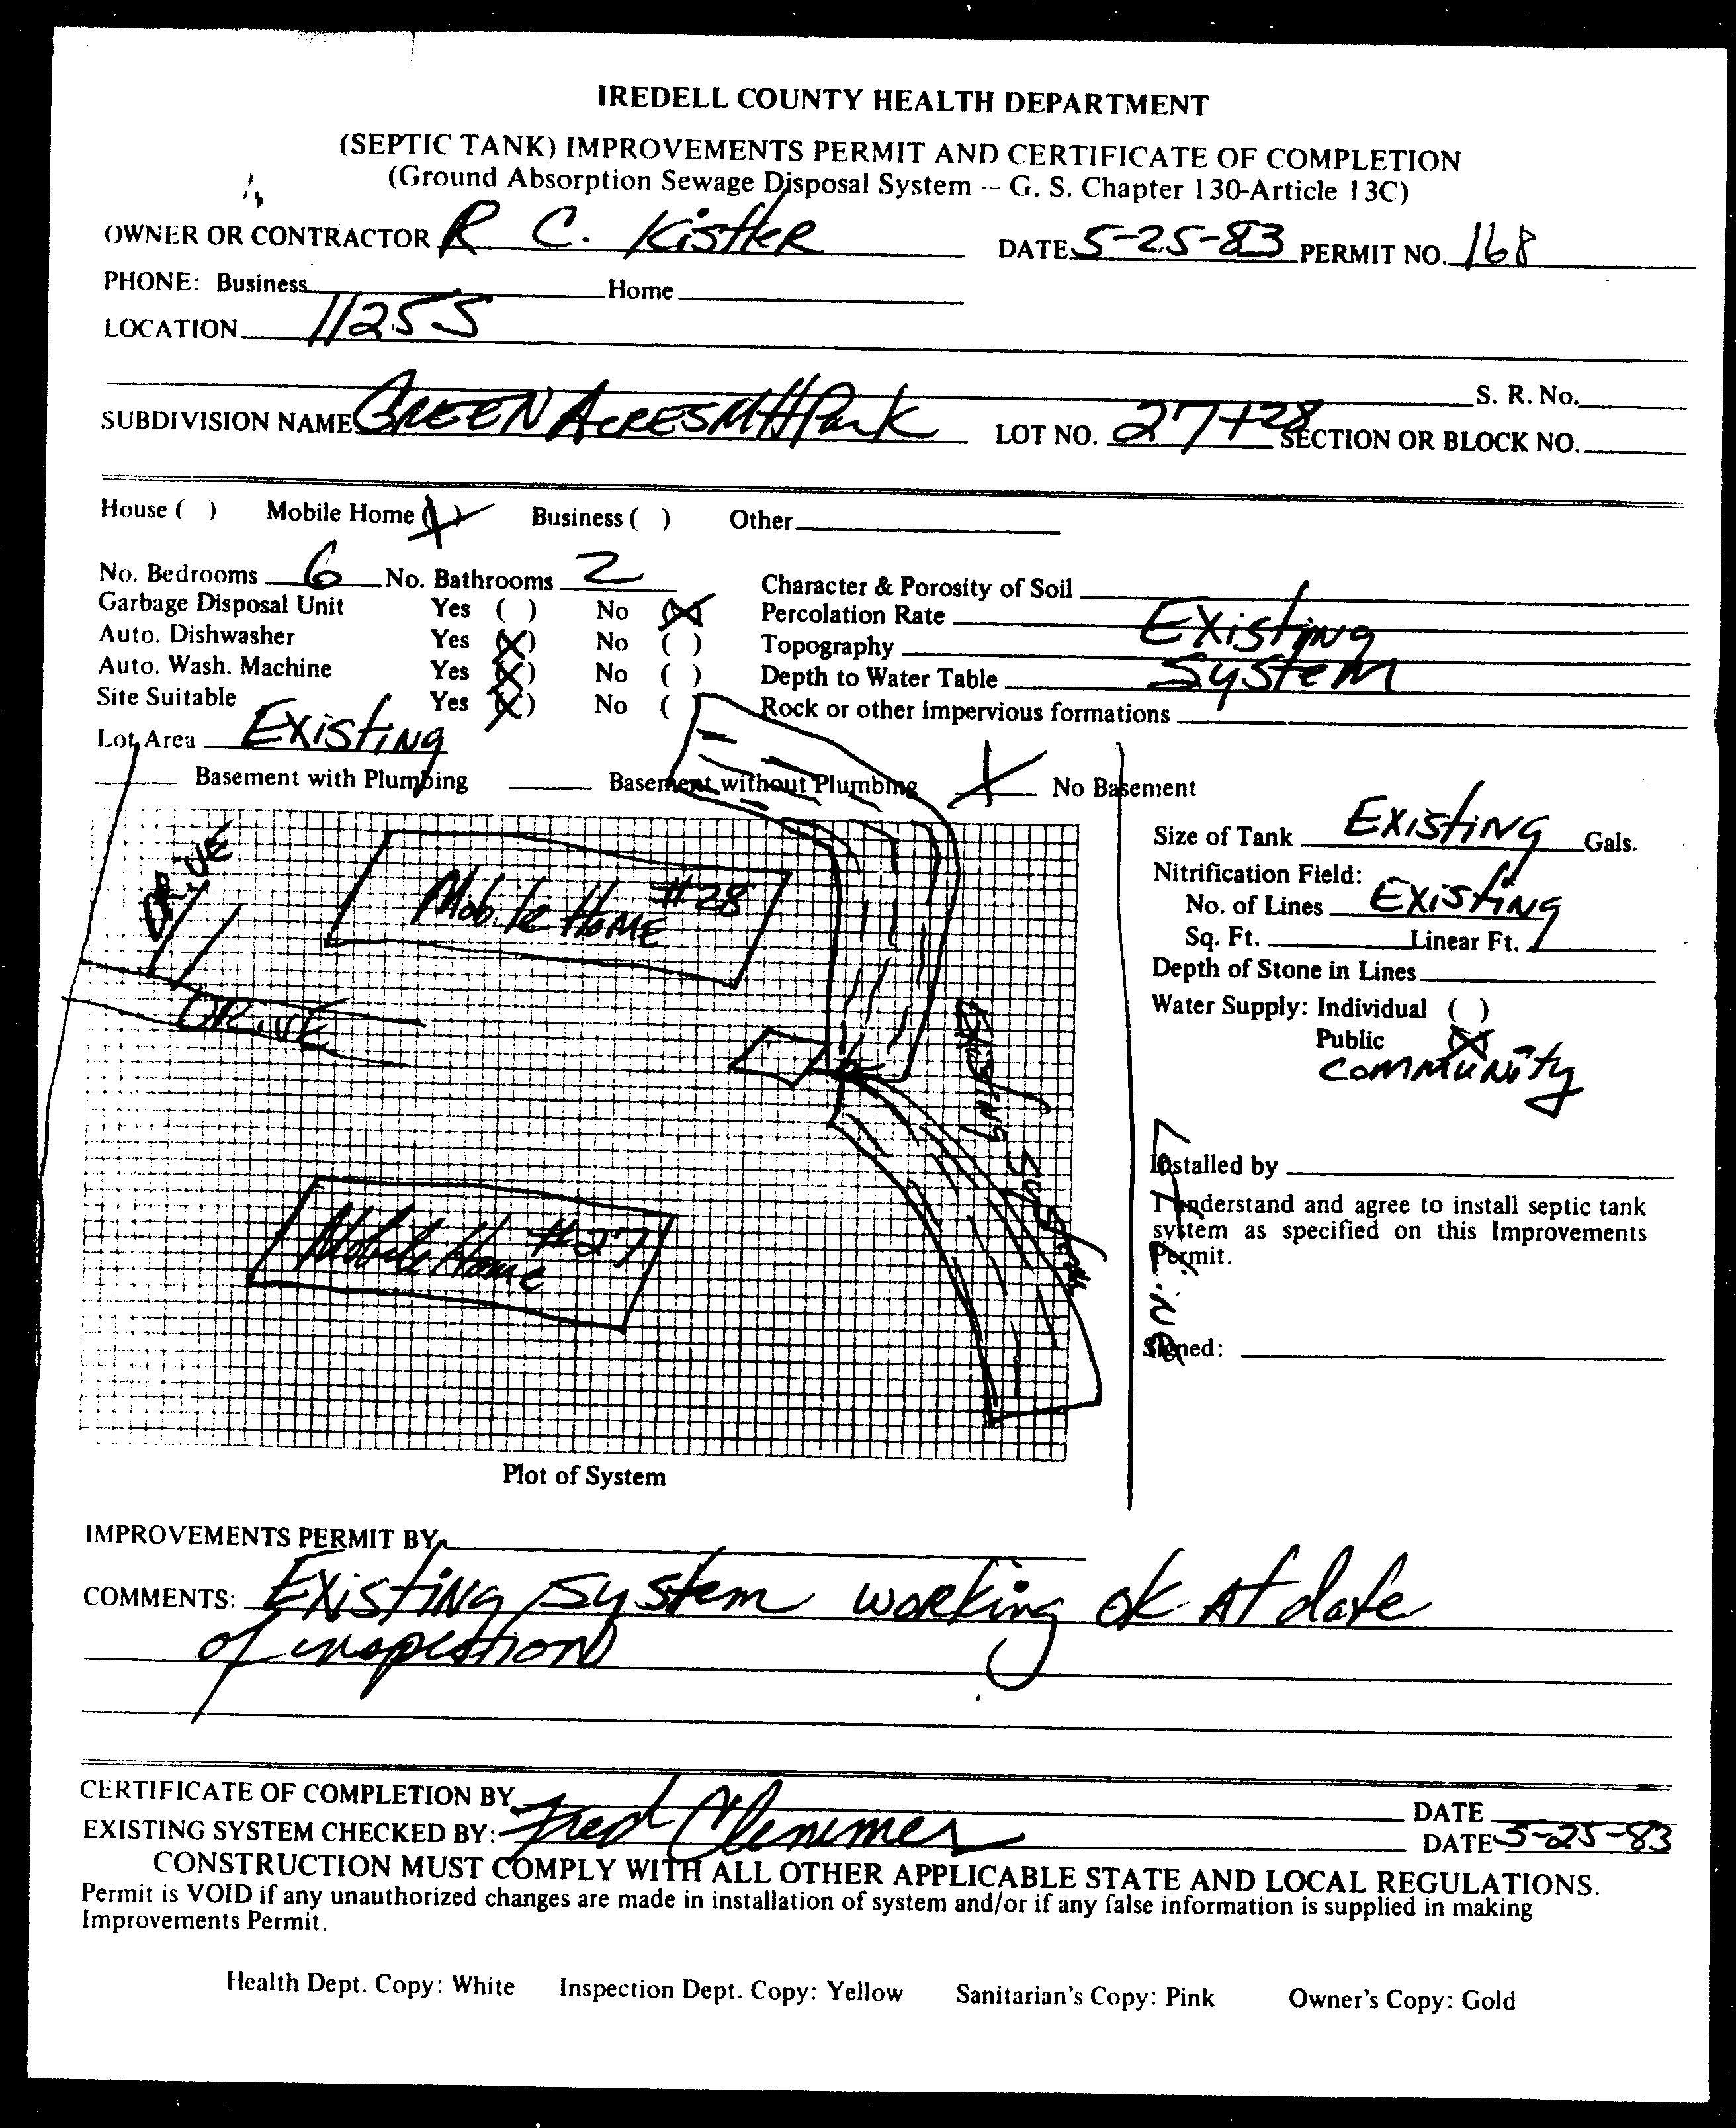 IREDELL COUNTY HEALTH DEPARTMENT
(SEPTIC TANK) IMPROVEMENTS PERMIT AND CERTIFICATE OF COMPLETION
(Ground Absorption Sewage Disposal System -- G. S. Chapter 130-Article 13C)
OWNER OR CONTRACTOR R C. Kistler DATE 5-25-83 PERMIT NO. 168
PHONE: Business Home
LOCATION 1125 S
S. R. No.
SUBDIVISION NAME GREEN ACRES MH Park LOT NO. 27+28 SECTION OR BLOCK NO.
House ( ) Mobile Home (X) Business ( ) Other
No. Bedrooms 6 No. Bathrooms 2 Character & Porosity of Soil
Garbage Disposal Unit Yes ( ) No (X) Percolation Rate Existing
Auto. Dishwasher Yes (X) No ( ) Topography System
Auto. Wash. Machine Yes (X) No ( ) Depth to Water Table
Site Suitable Yes (X) No ( Rock or other impervious formations
Lot Area Existing
Basement with Plumbing Basement without Plumbing X No Basement
Size of Tank Existing Gals.
Nitrification Field:
No. of Lines Existing
Sq. Ft. Linear Ft.
Depth of Stone in Lines
Water Supply: Individual ( )
Public (X)
Community
Installed by
I understand and agree to install septic tank
system as specified on this Improvements
Permit.
Signed:
DRIVE
Mobile Home #28
DRIVE
Existing System
Mobile Home #27
Plot of System
IMPROVEMENTS PERMIT BY
COMMENTS: Existing system working ok At date
of inspection
CERTIFICATE OF COMPLETION BY DATE
EXISTING SYSTEM CHECKED BY: Fred Clemmer DATE 5-25-83
CONSTRUCTION MUST COMPLY WITH ALL OTHER APPLICABLE STATE AND LOCAL REGULATIONS.
Permit is VOID if any unauthorized changes are made in installation of system and/or if any false information is supplied in making
Improvements Permit.
Health Dept. Copy: White Inspection Dept. Copy: Yellow Sanitarian's Copy: Pink Owner's Copy: Gold